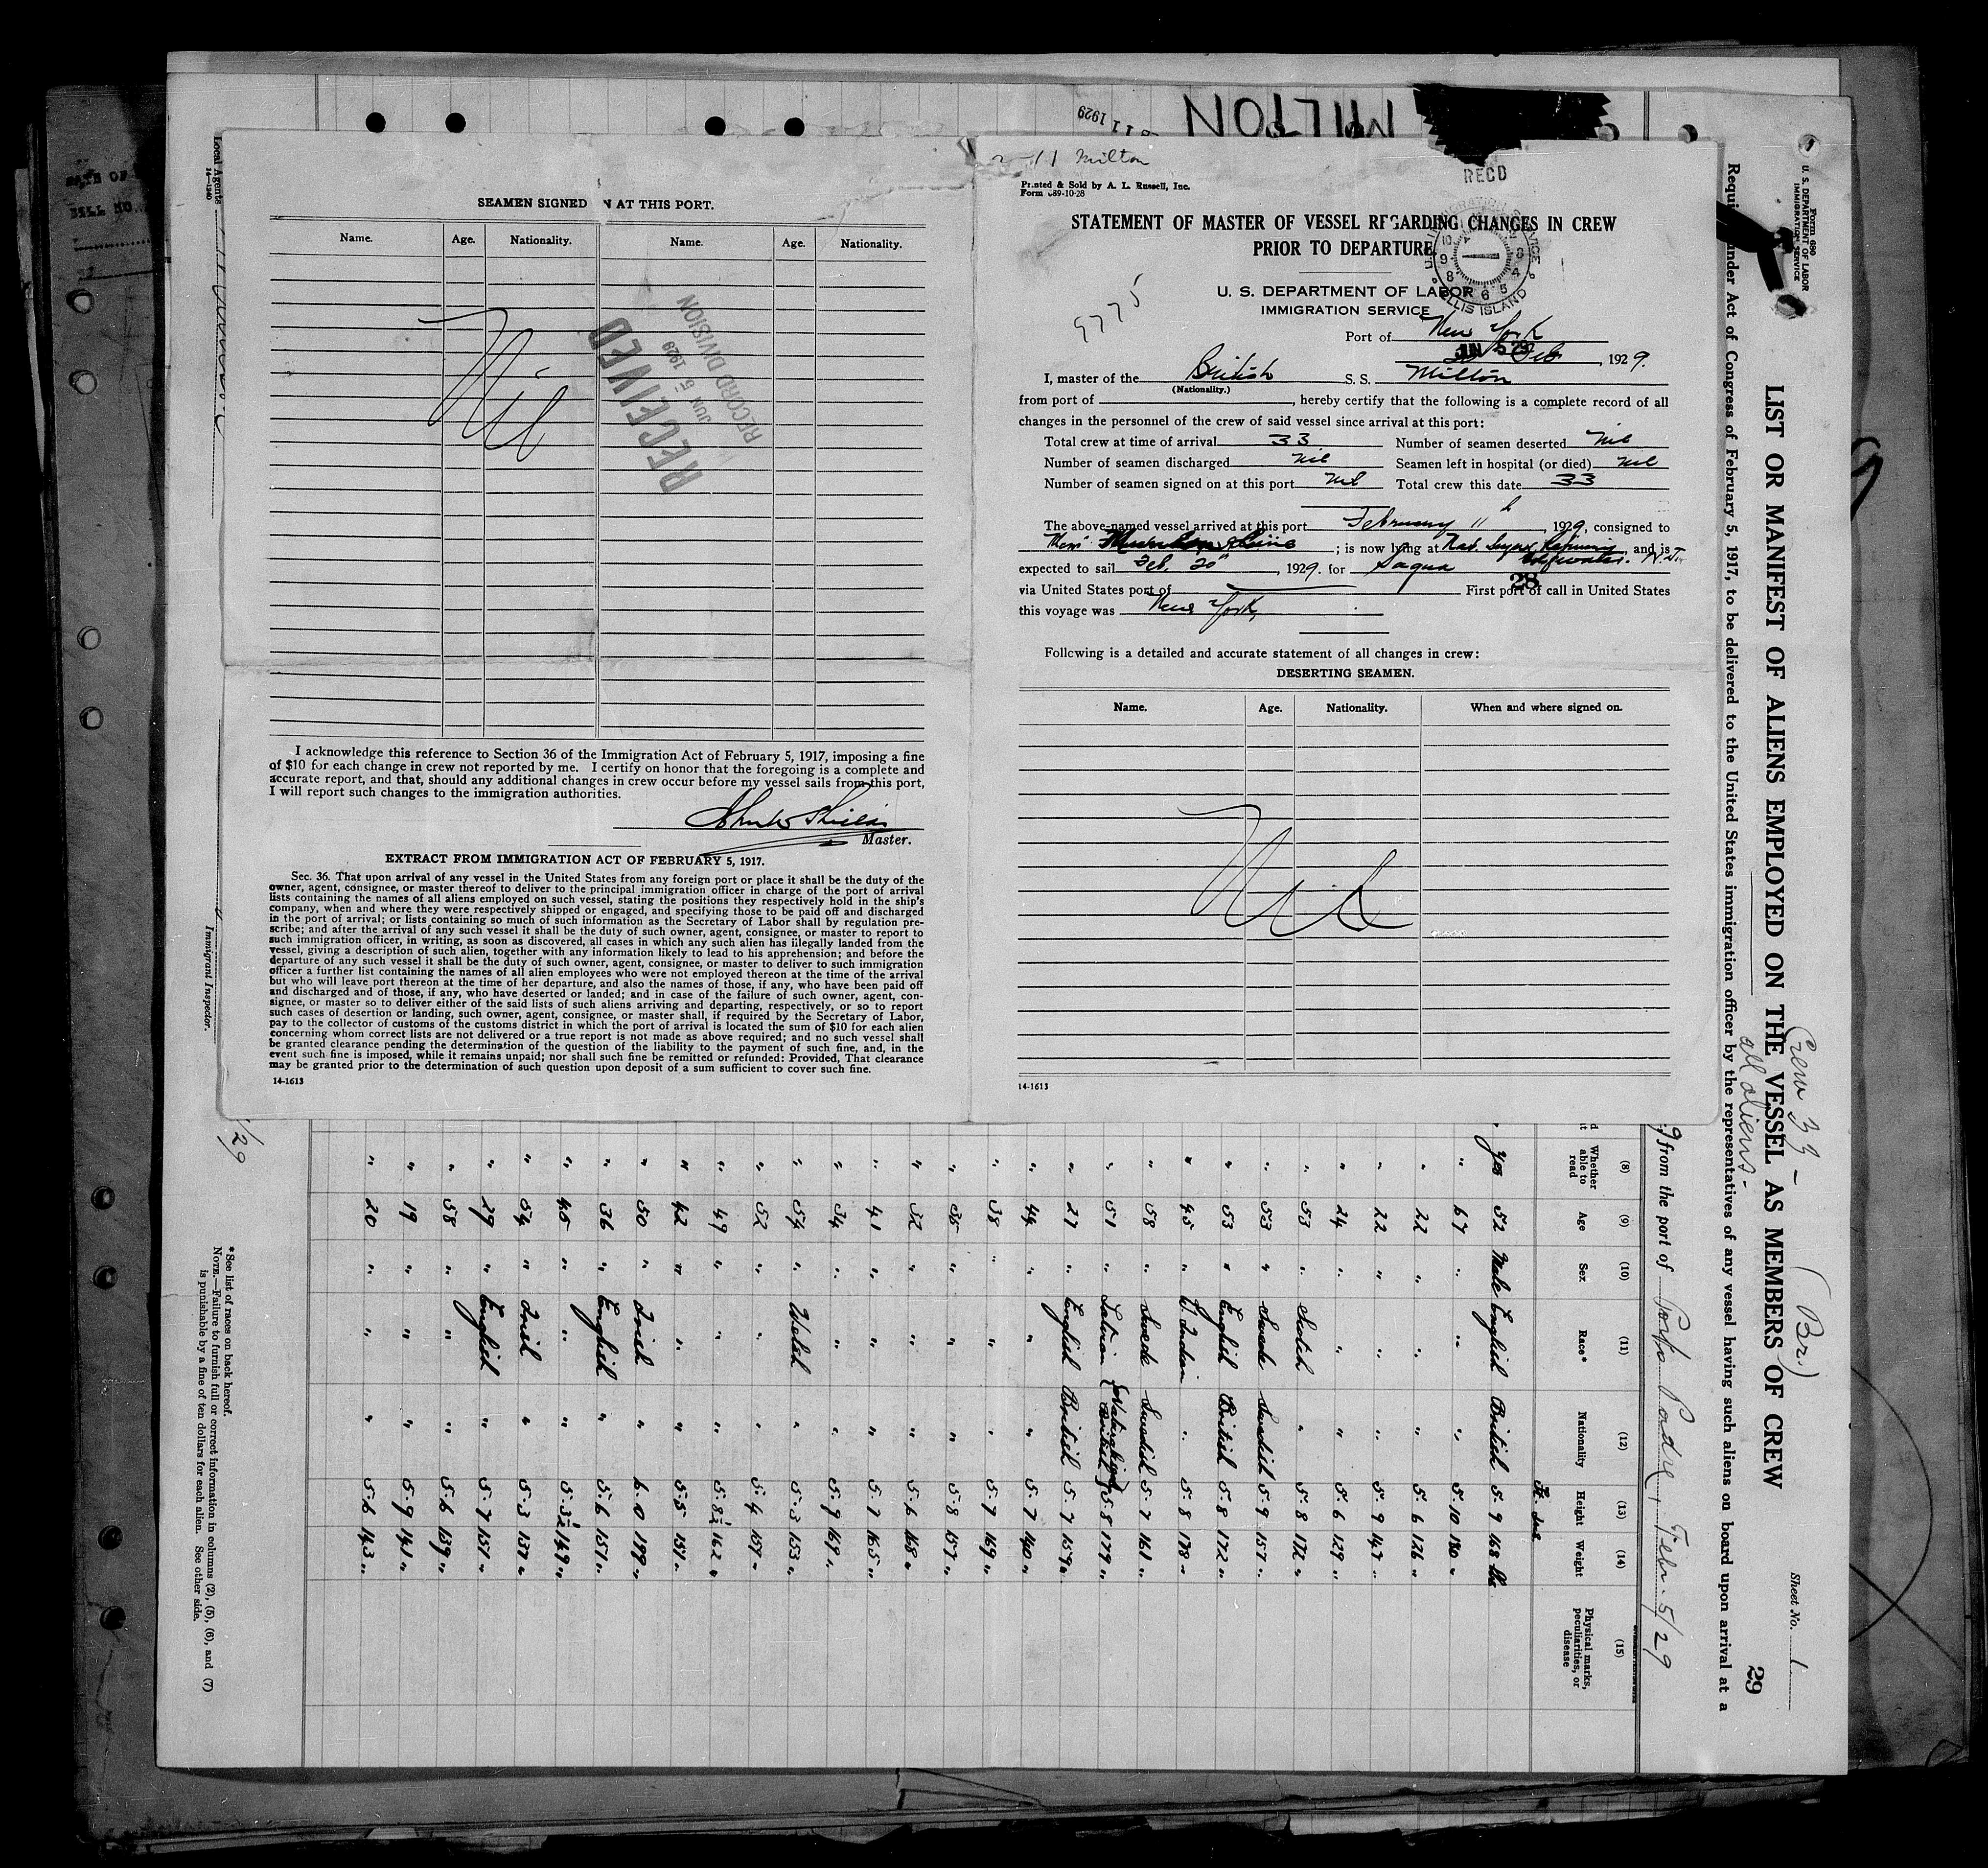 SEAMEN SIGNED N AT THIS PORT.
Name. Age. Nationality. Name. Age. Nationality.
Nil
RECEIVED
JUN 5 1929
RECORD DIVISION
I acknowledge this reference to Section 36 of the Immigration Act of February 5, 1917, imposing a fine
of $10 for each change in crew not reported by me. I certify on honor that the foregoing is a complete and
accurate report, and that, should any additional changes in crew occur before my vessel sails from this port,
I will report such changes to the immigration authorities.
Master.
EXTRACT FROM IMMIGRATION ACT OF FEBRUARY 5, 1917.
Sec. 36. That upon arrival of any vessel in the United States from any foreign port or place it shall be the duty of the
owner, agent, consignee, or master thereof to deliver to the principal immigration officer in charge of the port of arrival
lists containing the names of all aliens employed on such vessel, stating the positions they respectively hold in the ship's
company, when and where they were respectively shipped or engaged, and specifying those to be paid off and discharged
in the port of arrival; or lists containing so much of such information as the Secretary of Labor shall by regulation pre-
scribe; and after the arrival of any such vessel it shall be the duty of such owner, agent, consignee, or master to report to
such immigration officer, in writing, as soon as discovered, all cases in which any such alien has illegally landed from the
vessel, giving a description of such alien, together with any information likely to lead to his apprehension; and before the
departure of any such vessel it shall be the duty of such owner, agent, consignee, or master to deliver to such immigration
officer a further list containing the names of all alien employees who were not employed thereon at the time of the arrival
but who will leave port thereon at the time of her departure, and also the names of those, if any, who have been paid off
and discharged and of those, if any, who have deserted or landed; and in case of the failure of such owner, agent, con-
signee, or master so to deliver either of the said lists of such aliens arriving and departing, respectively, or so to report
such cases of desertion or landing, such owner, agent, consignee, or master shall, if required by the Secretary of Labor,
pay to the collector of customs of the customs district in which the port of arrival is located the sum of $10 for each alien
concerning whom correct lists are not delivered or a true report is not made as above required; and no such vessel shall
be granted clearance pending the determination of the question of the liability to the payment of such fine, and, in the
event such fine is imposed, while it remains unpaid; nor shall such fine be remitted or refunded: Provided, That clearance
may be granted prior to the determination of such question upon deposit of a sum sufficient to cover such fine.
14-1613
MILTON
11 1929
2-11 Milton
Printed & Sold by A. L. Russell, Inc.
Form 689-10-28
RECD
ELLIS ISLAND
STATEMENT OF MASTER OF VESSEL REGARDING CHANGES IN CREW
PRIOR TO DEPARTURE
U. S. DEPARTMENT OF LABOR
IMMIGRATION SERVICE
9775
Port of New York
JUN 5 29
Feb, 1929.
I, master of the British S. S. Milton
(Nationality.)
from port of , hereby certify that the following is a complete record of all
changes in the personnel of the crew of said vessel since arrival at this port:
Total crew at time of arrival 33 Number of seamen deserted nil
Number of seamen discharged nil Seamen left in hospital (or died) nil
Number of seamen signed on at this port Nil Total crew this date 33
The above-named vessel arrived at this port February 11th, 1929, consigned to
; is now lying at Nat. Sugar Refining, and is
expected to sail Feb. 20th, 1929. for Sagua Edgewater. N.J.
28
via United States port of First port of call in United States
this voyage was New York,
Following is a detailed and accurate statement of all changes in crew:
DESERTING SEAMEN.
Name. Age. Nationality. When and where signed on.
Nil
14-1613
Form 680
U. S. DEPARTMENT OF LABOR
IMMIGRATION SERVICE
Sheet No. 1
Crew 33 – (Br.)
all aliens-
LIST OR MANIFEST OF ALIENS EMPLOYED ON THE VESSEL AS MEMBERS OF CREW
29
under Act of Congress of February 5, 1917, to be delivered to the United States immigration officer by the representatives of any vessel having such aliens on board upon arrival at a
9 from the port of Porto Padre, Febr. 5/29
(8) (9) (10) (11) (12) (13) (14) (15)
Whether able to read Age Sex Race* Nationality Height Weight Physical marks, peculiarities, or disease
Ft. Ins
yes 52 Male English British 5.9 168 lbs
" 67 " " " 5.10 180 "
" 22 " " " 5.6 126 "
" 22 " " " 5.9 147 "
" 24 " " " 5.6 129 "
" 53 " Scotch " 5.8 172 "
" 53 " Swede Swedish 5.9 157 "
" 53 " English British 5.8 172 "
" 45 " W. Indian " 5.8 178 "
" 58 " Swede Swedish 5.7 161 "
" 51 " Latvian (Naturalized British) 5.8 179 "
" 27 " English British 5.7 159 "
" 44 " " " 5.7 140 "
" 38 " " " 5.7 169 "
" 35 " " " 5.8 157 "
" 32 " " " 5.6 168 "
" 41 " " " 5.7 165 "
" 34 " " " 5.9 169 "
" 54 " Welsh " 5.3 153 "
" 52 " " " 5.4 157 "
" 49 " " " 5.8½ 162 "
" 42 " " " 5.5 151 "
" 50 " Irish " 6.0 189 "
" 36 " English " 5.6 151 "
" 45 " " " 5.3½ 149 "
" 54 " Irish " 5.3 137 "
" 29 " English " 5.7 151 "
" 58 " " " 5.6 139 "
" 19 " " " 5.9 141 "
" 20 " " " 5.6 143 "
*See list of races on back hereof.
NOTE.—Failure to furnish full or correct information in columns (2), (5), (6), and (7)
is punishable by a fine of ten dollars for each alien. See other side.
Local Agents
14-1240
Immigrant Inspector.
/29